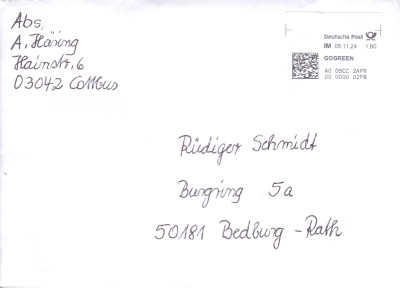 Abs.
A. Häring
Hainstr. 6
03042 Cottbus
Deutsche Post
IM 05.11.24 1,60
GOGREEN
A0 05CC 2AF6
00 0000 02FB
Rüdiger Schmidt
Burgring 5a
50181 Bedburg - Rath